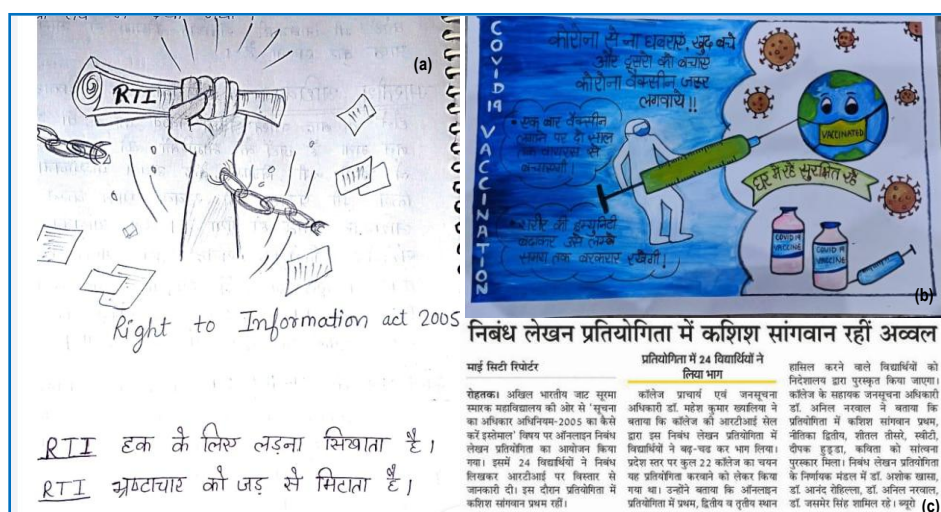 (a)
RTI
Right to Information act 2005
RTI हक के लिए लड़ना सिखाता है।
RTI भ्रष्टाचार को जड़ से मिटाता है।
COVID 19 VACCINATION
कोरोना से ना घबराएं, खुद बचे
और दूसरों को बचाएं
कोरोना वैक्सीन जरूर
लगवाये!!
एक बार वैक्सीन
लगाने पर दो साल
तक वायरस से
बचाएगी।
शरीर की इम्युनिटी
बढ़ाकर उसे लम्बे
समय तक बरकरार रखेगी।
VACCINATED
घर में रहें सुरक्षित रहें
COVID 19
VACCINE
COVID 19
VACCINE
(b)
निबंध लेखन प्रतियोगिता में कशिश सांगवान रहीं अव्वल
माई सिटी रिपोर्टर
रोहतक। अखिल भारतीय जाट सूरमा
स्मारक महाविद्यालय की ओर से 'सूचना
का अधिकार अधिनियम-2005 का कैसे
करें इस्तेमाल' विषय पर ऑनलाइन निबंध
लेखन प्रतियोगिता का आयोजन किया
गया। इसमें 24 विद्यार्थियों ने निबंध
लिखकर आरटीआई पर विस्तार से
जानकारी दी। इस दौरान प्रतियोगिता में
कशिश सांगवान प्रथम रहीं।
प्रतियोगिता में 24 विद्यार्थियों ने
लिया भाग
कॉलेज प्राचार्य एवं जनसूचना
अधिकारी डॉ. महेश कुमार ख्यालिया ने
बताया कि कॉलेज की आरटीआई सेल
द्वारा इस निबंध लेखन प्रतियोगिता में
विद्यार्थियों ने बढ़-चढ कर भाग लिया।
प्रदेश स्तर पर कुल 22 कॉलेज का चयन
यह प्रतियोगिता करवाने को लेकर किया
गया था। उन्होंने बताया कि ऑनलाइन
प्रतियोगिता में प्रथम, द्वितीय व तृतीय स्थान
हासिल करने वाले विद्यार्थियों को
निदेशालय द्वारा पुरस्कृत किया जाएगा।
कॉलेज के सहायक जनसूचना अधिकारी
डॉ. अनिल नरवाल ने बताया कि
प्रतियोगिता में कशिश सांगवान प्रथम,
नीतिका द्वितीय, शीतल तीसरे, स्वीटी,
दीपक हुड्डा, कविता को सांत्वना
पुरस्कार मिला। निबंध लेखन प्रतियोगिता
के निर्णायक मंडल में डॉ. अशोक खासा,
डॉ आनंद रोहिल्ला, डॉ. अनिल नरवाल,
डॉ. जसमेर सिंह शामिल रहे। ब्यूरो
(c)